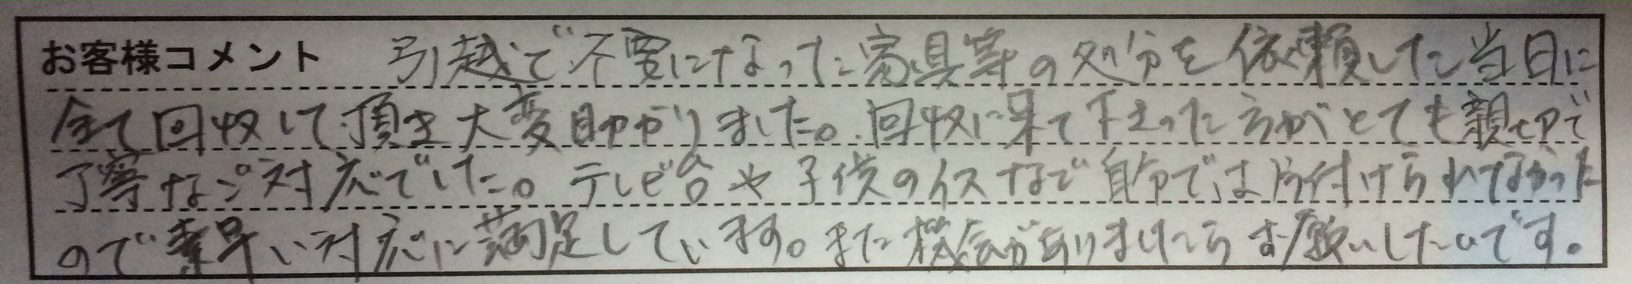 お客様コメント 引越で不要になった家具等の処分を依頼した当日に
全て回収して頂き大変助かりました。回収に来て下さった方がとても親切で
丁寧なご対応でした。テレビ台や子供のイスなど自分では片付けられてなかった
ので素早い対応に満足しています。また機会がありましたらお願いしたいです。